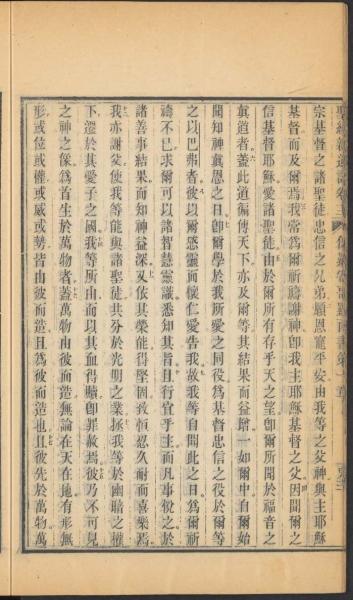 宗基督之諸聖徒忠信之兄弟願恩寵平安由我等之父神與主耶穌
基督而及爾焉我常為爾祈禱謝神即我主耶穌基督之父因聞爾之
信基督耶穌愛諸聖徒由於爾所有存乎天之望即爾所聞於福音之
真道者蓋此道徧傳天下亦及爾等其結果而益增一如爾中自爾始
聞知神真恩之日即爾學於我所愛之同役為基督忠信之役於爾等
之以巴弗者彼以爾感靈而懷仁愛告我故我等自聞此之日為爾祈
禱不已求爾可以諸智慧靈識悉知其旨且行宜乎主而凡事悅之於
諸善事結果而知神益深又依其榮能得堅固致恒忍久耐而喜樂焉
我亦謝父使我等能與諸聖徒共分於光明之業拯我等於幽暗之權
下遷於其愛子之國我等所由而以其血得贖即罪赦焉彼乃不可見
之神之像為首生於萬物者蓋萬物由彼而造無論在天在地有形無
形或位或權或威或勢皆由彼而造且為彼而造也且彼先於萬物萬